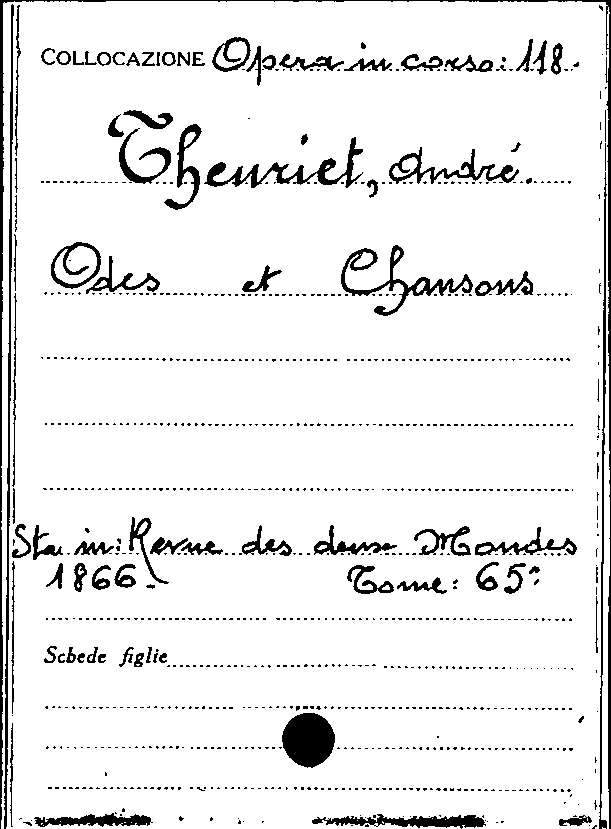 COLLOCAZIONE Opera in corso: 118.
Theuriet, André.
Odes et Chansons
Sta in: Revue des deux Mondes
1866. Tome: 65º
Schede figlie